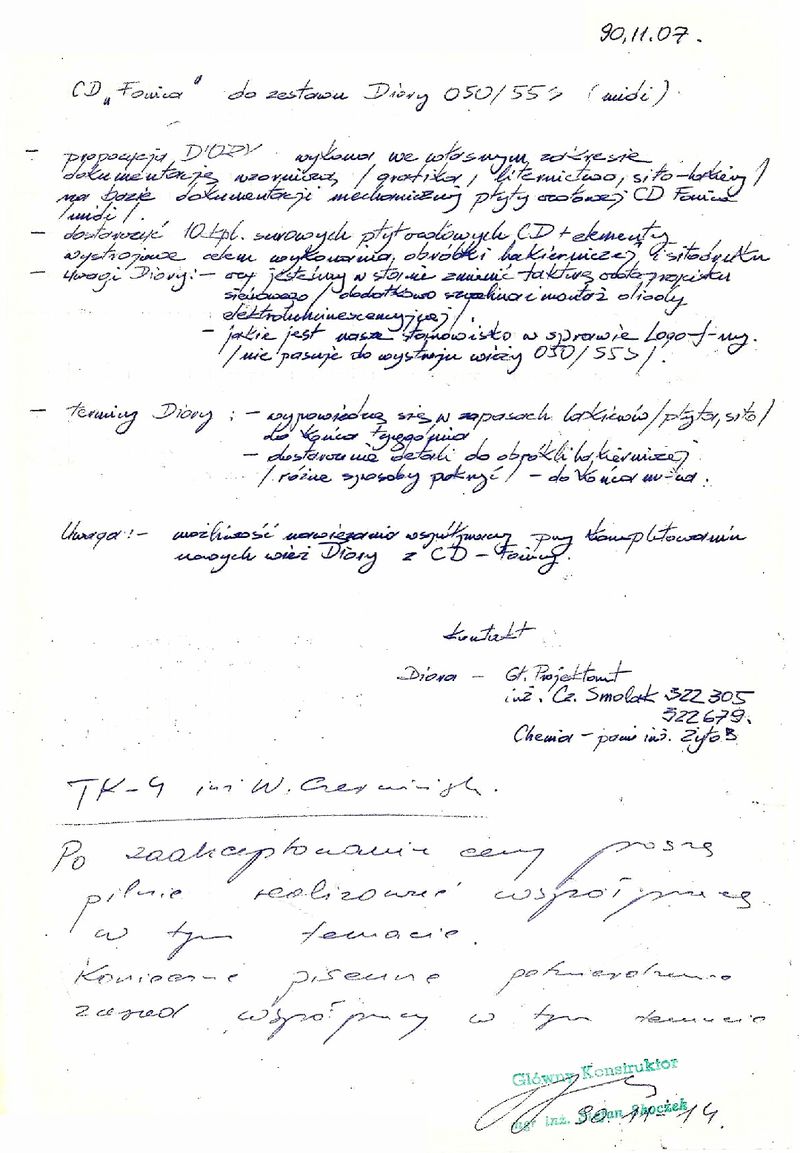 90.11.07.
CD „Fonica” do zestawu Diory 050/553 (midi)
- propozycja DIORY wykona we własnym zakresie
dokumentację wzorniczą / grafika, liternictwo, sito-lakiery /
na bazie dokumentacji mechanicznej płyty czołowej CD Fonica
/midi/.
- dostarczyć 10 kpl. surowych płyt czołowych CD + elementy
wystrojowe celem wykonania obróbki lakierniczej i sitodruku
- uwagi Diory: - czy jesteśmy w stanie zmienić fakturę
sieciowego / dodatkowo szczelina i montaż diody
elektroluminescencyjnej /.
- jakie jest nasze stanowisko w sprawie Logo f-my.
/ nie pasuje do wystroju wieży 050/553 /.
- terminy Diory: - wypowiedzą się w zapasach lakierów / płyta, sito /
do końca tygodnia
- dostarczenie detali do obróbki lakierniczej
/ różne sposoby pokryć / - do końca m-ca.
Uwaga! - możliwość nawiązania współpracy przy kompletowaniu
nowych wież Diory z CD - Fonicy.
Kontakt
Diora - Gł. Projektant
inż. Cz. Smolak 322 305
322 679.
Chemia - pani inż. Żyło
TK-4 inż W.
Po zaakceptowaniu ceny proszę
pilnie realizować współpracę
w tym temacie.
Konieczne pisemne potwierdzenie
zasad współpracy w tym temacie
Główny Konstruktor
mgr inż. Stefan Skoczek
90-11-14.